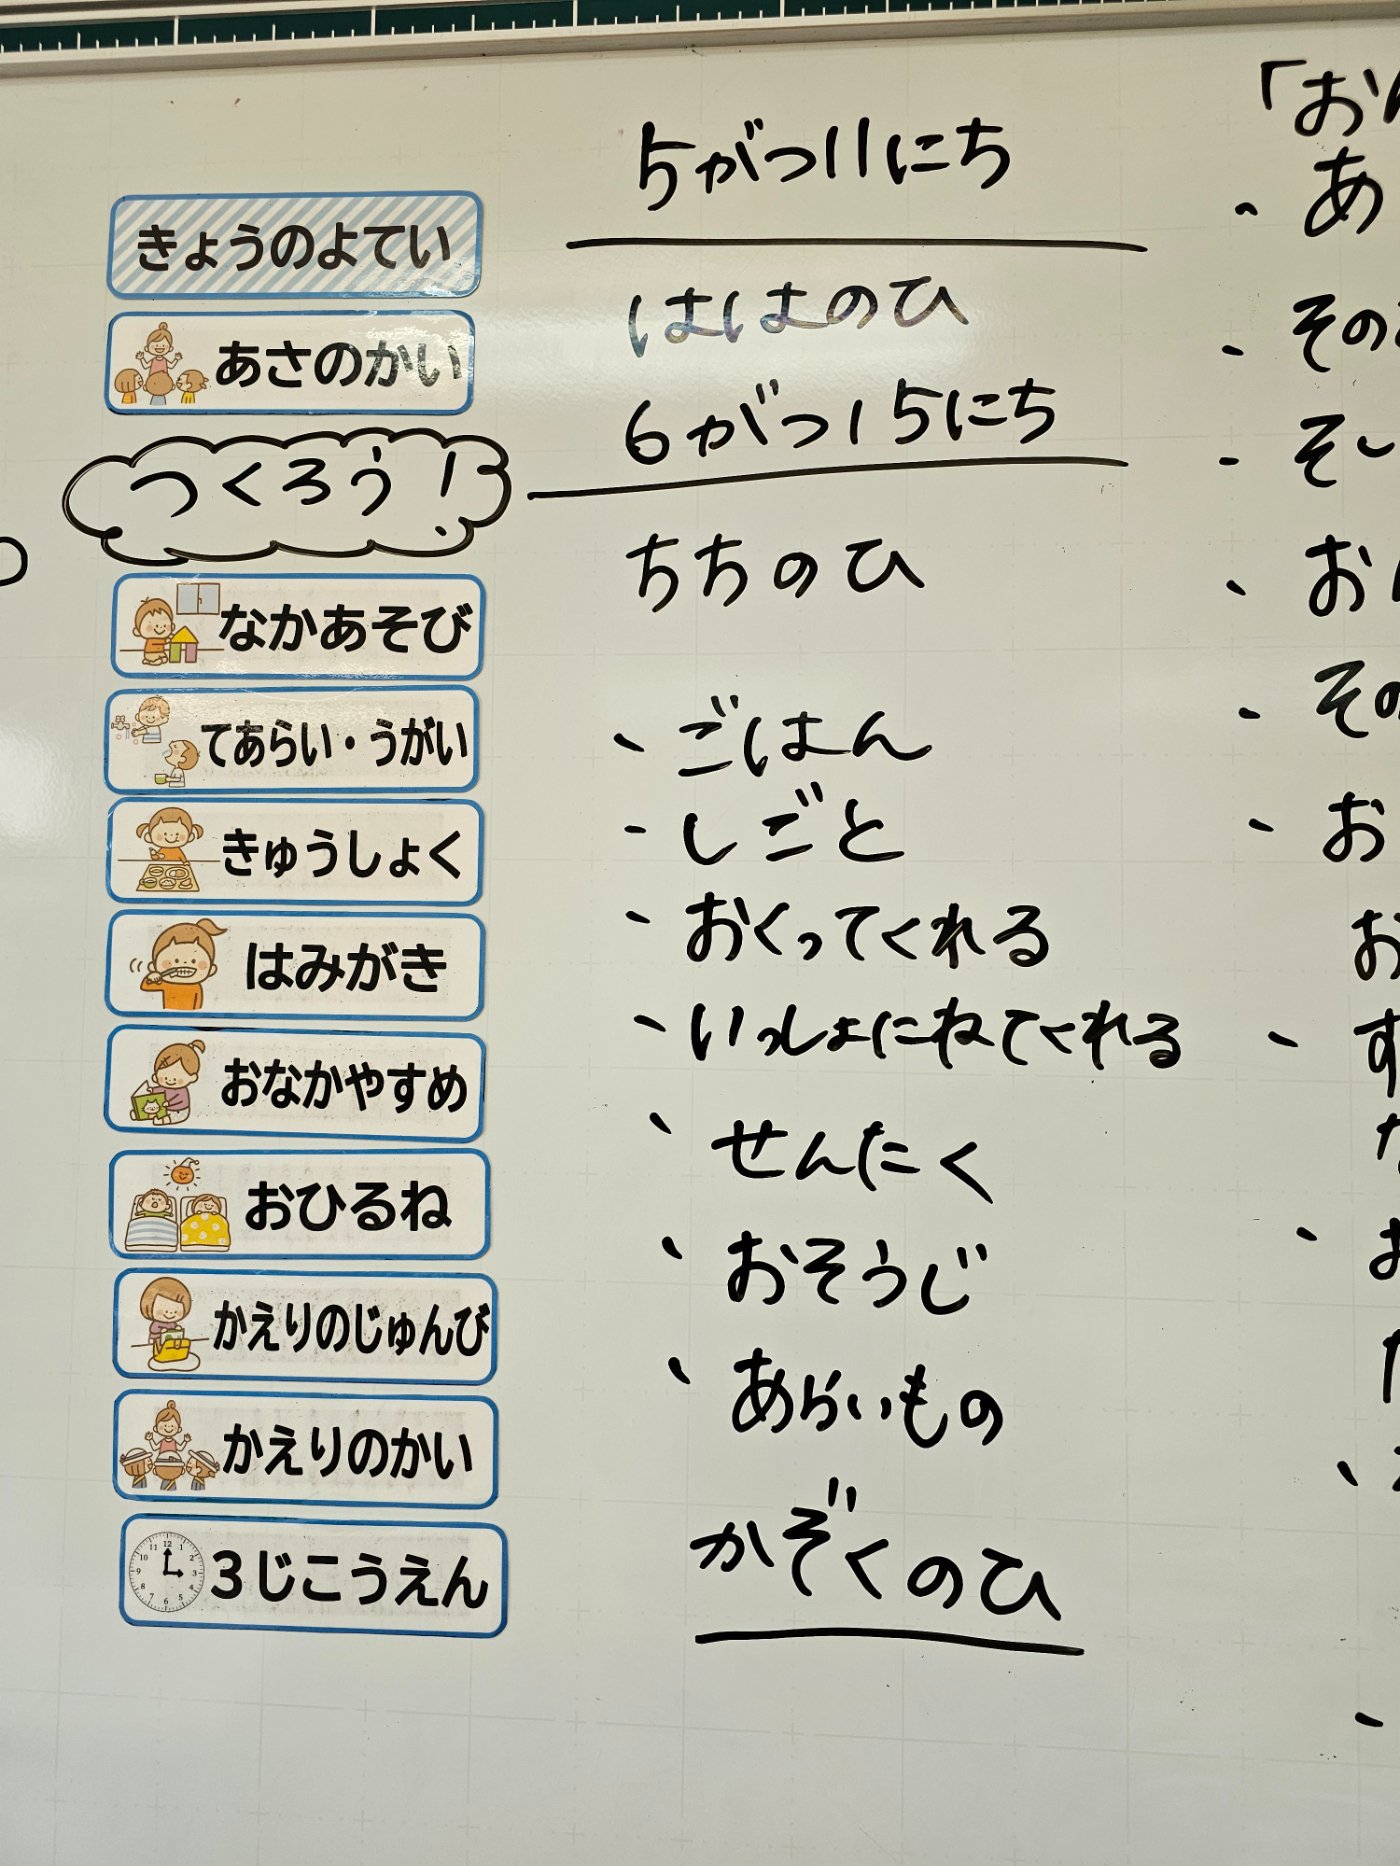 きょうのよてい
あさのかい
つくろう!
なかあそび
てあらい・うがい
きゅうしょく
はみがき
おなかやすめ
おひるね
かえりのじゅんび
かえりのかい
3じこうえん
5がつ11にち
ははのひ
6がつ15にち
ちちのひ
、ごはん
、しごと
、おくってくれる
、いっしょにねてくれる
、せんたく
、おそうじ
、あらいもの
かぞくのひ